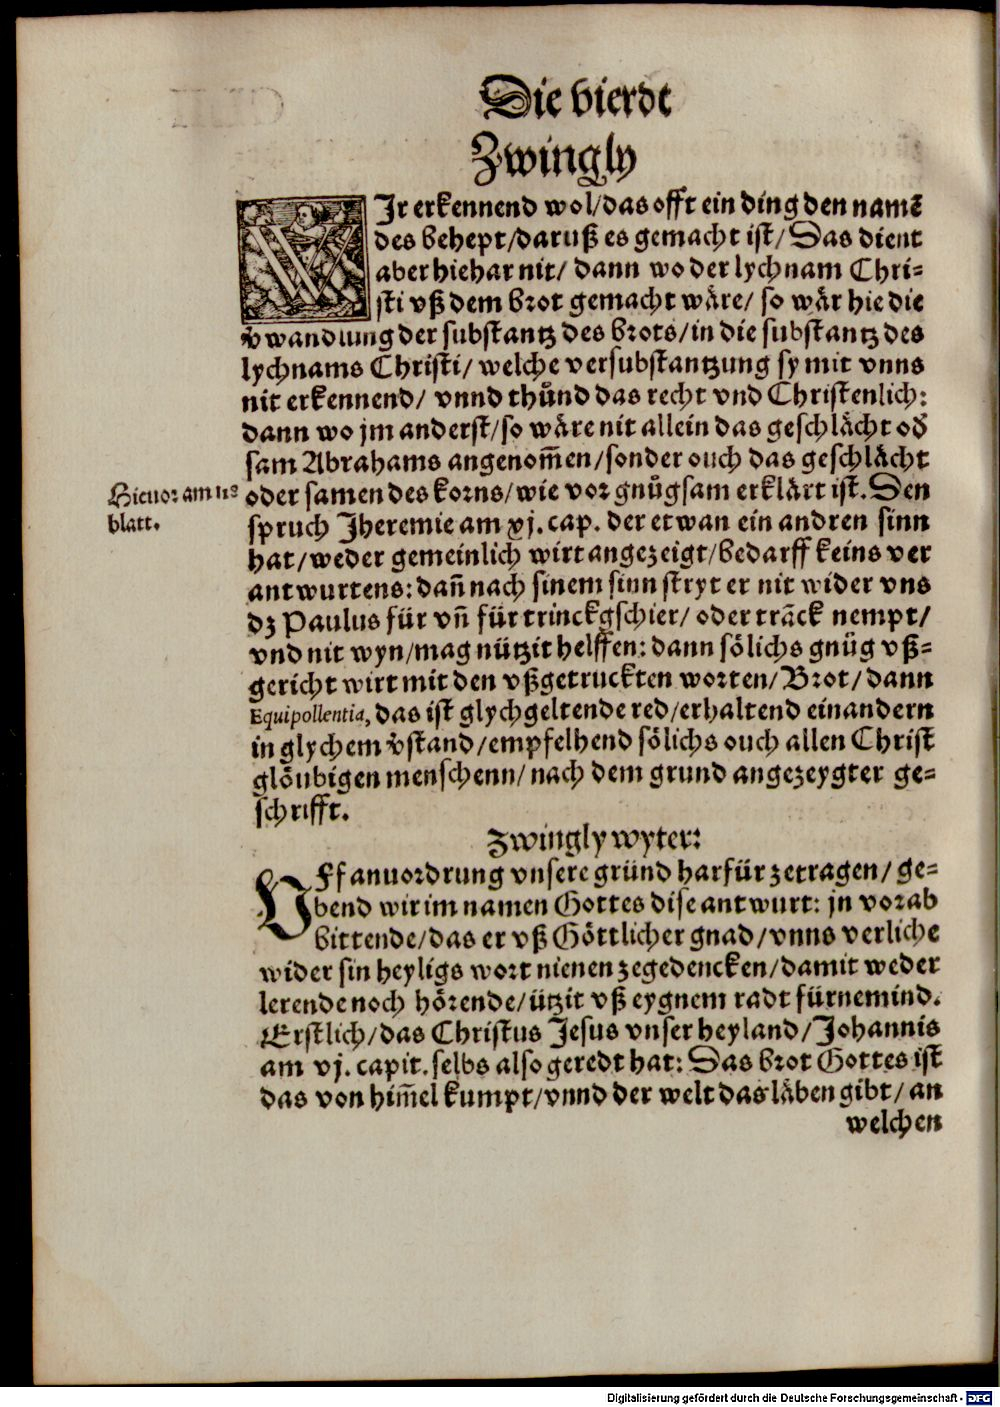 Die vierdt
Zwingly
WIr erkennend wol/das offt ein ding den namē
des behept/daruß es gemacht ist/Das dient
aber hiehar nit/ dann wo der lychnam Chri-
sti vß dem brot gemacht wäre/ so wär hie die
v̄wandlung der substantz des brots/in die substantz des
lychnams Christi/ welche versubstantzung sy mit vnns
nit erkennend/ vnnd thůnd das recht vnd Christenlich:
dann wo jm anderst/so wäre nit allein das geschlächt od̄
sam Abrahams angenom̄en/sonder ouch das geschlächt
oder samen des korns/wie vor gnůgsam erklärt ist. Den
Hieuor am
blatt.
spruch Jheremie am xj. cap. der etwan ein andren sinn
hat/weder gemeinlich wirt angezeigt/bedarff keins ver
antwurtens: dañ nach sinem sinn stryt er nit wider vns
dz Paulus für vñ für trinckgschier/ oder trāck nempt/
vnd nit wyn/mag nützit helffen: dann sölichs gnůg vß-
gericht wirt mit den vßgetruckten worten/Brot/dann
Equipollentia, das ist glychgeltende red/erhaltend einandern
in glychem v̄stand/empfelhend sölichs ouch allen Christ
glöubigen menschenn/nach dem grund angezeygter ge-
schrifft.
Zwingly wyter:
VFf anuordrung vnsere gründ harfür zetragen/ ge-
bend wir im namen Gottes dise antwurt: jn vorab
bittende/das er vß Göttlicher gnad/vnns verliche
wider sin heyligs wort nienen zegedencken/damit weder
lerende noch hörende/ützit vß eygnem radt fürnemind.
Erstlich/das Christus Jesus vnser heyland/Johannis
am vj. capit. selbs also geredt hat: Das brot Gottes ist
das von him̄el kumpt/vnnd der welt das läben gibt/ an
welchen
Digitalisierung gefördert durch die Deutsche Forschungsgemeinschaft - DFG